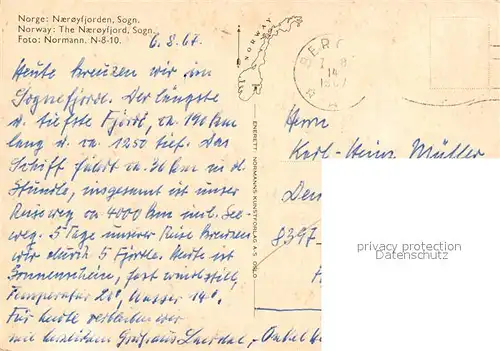 Norge: Nærøyfjorden, Sogn.
Norway: The Nærøyfjord, Sogn.
Foto: Normann. N-8-10.
6.8.67.
Heute kreuzen wir im
Sognefjord. Der längste
u. tiefste Fjord, ca. 190 km
lang u. ca. 1250 tief. Das
Schiff fährt ca. 30 km in d.
Stunde, insgesamt ist unser
Reiseweg ca 4000 km inkl. See-
weg. 5 Tage unserer Reise kreuzen
wir durch 5 Fjorde. Heute ist
Sonnenschein, fast windstill,
Temperatur 20°, Wasser 14°.
Für heute verbleiben wir
mit herzlichen Grüß. aus Laerdal, Onkel
NORWAY
ENERETT NORMANNS KUNSTFORLAG A-S. OSLO
BERG
14
1967
Herrn
Karl-Heinz Müller
8397
privacy protection
www.oldthing.de